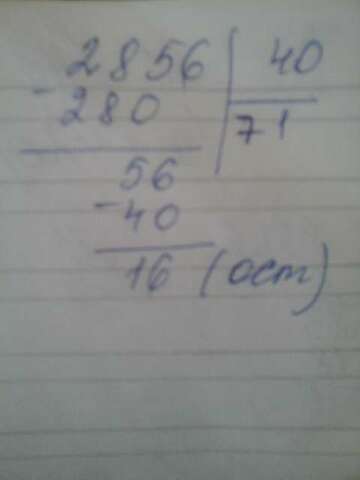 2856 | 40
- 280 | 71
56
- 40
16 (ост)